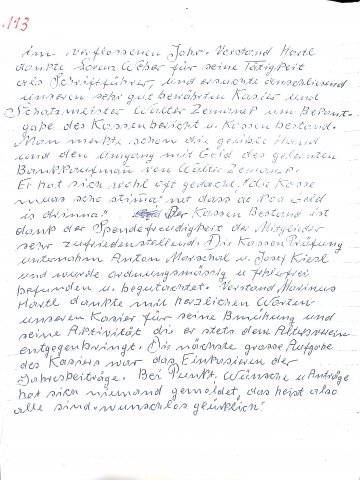 113
im verflossenen Jahr. Vorstand Hartl
dankte Lorenz Weber für seine Tätigkeit
als Schriftführer, und ersuchte anschliesend
unseren sehr gut bewährten Kasier und
Schatzmeister Walter Zemanek um Bekannt-
gabe des Kassenbericht u. Kassenbestand.
Man merkte schon die geübte Hand
und den Umgang mit Geld des gelernten
Bankkaufman von Walter Zemanek.
Er hat sich wohl oft gedacht, "die Kasse
muas scho stimma" net dass a Poa Geld
is drinna" Der Kassen Bestand ist
dank der Spendefreudigkeit der Mitglieder
sehr zufriedenstellend. Die Kassen Prüfung
unternahm Anton Marschal u. Josef Kiesl
und wurde ordnungsmässig u. fehlerfrei
befunden u. begutachtet. Vorstand Marinus
Hartl dankte mit herzlichen Worten
unseren Kasier für seine Bemühung und
seine Aktivität die er stets dem Altersverein
entgegenbringt. Die nächste grosse Aufgabe
des Kasiers war das Einkasieren der
Jahresbeiträge. Bei Punkt, Wünsche u. Anträge
hat sich niemand gemeldet, das heist also
alle sind wunschlos glücklich!